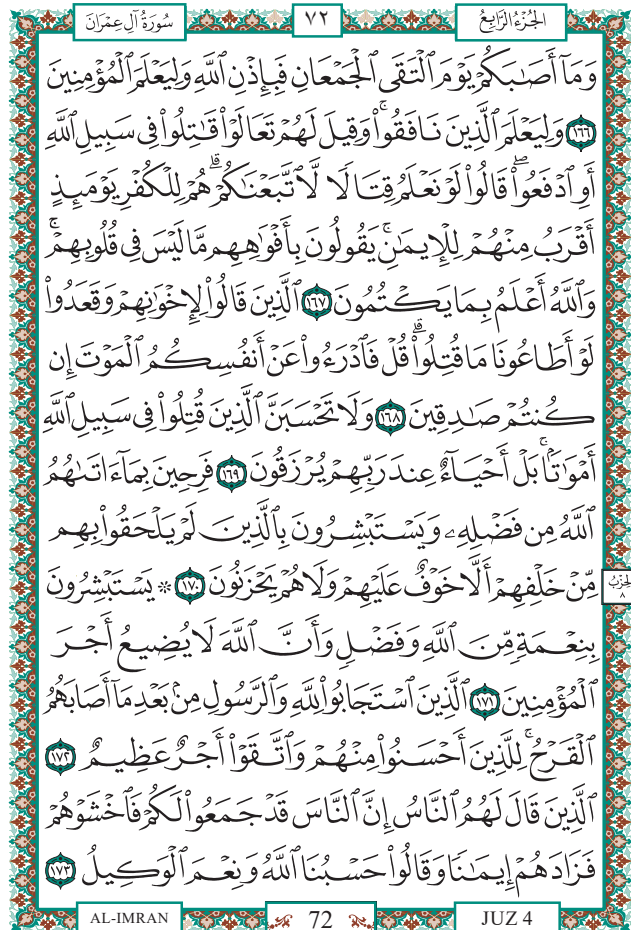 سُورَةُ آلِ عِمْرَانَ ٧٢ الجُزْءُ الرَّابِعُ
وَمَآ أَصَٰبَكُمْ يَوْمَ ٱلْتَقَى ٱلْجَمْعَانِ فَبِإِذْنِ ٱللَّهِ وَلِيَعْلَمَ ٱلْمُؤْمِنِينَ
١٦٦ وَلِيَعْلَمَ ٱلَّذِينَ نَافَقُوا۟ۚ وَقِيلَ لَهُمْ تَعَالَوْا۟ قَٰتِلُوا۟ فِى سَبِيلِ ٱللَّهِ
أَوِ ٱدْفَعُوا۟ۖ قَالُوا۟ لَوْ نَعْلَمُ قِتَالًا لَّٱتَّبَعْنَٰكُمْۗ هُمْ لِلْكُفْرِ يَوْمَئِذٍ
أَقْرَبُ مِنْهُمْ لِلْإِيمَٰنِۚ يَقُولُونَ بِأَفْوَٰهِهِم مَّا لَيْسَ فِى قُلُوبِهِمْۚ
وَٱللَّهُ أَعْلَمُ بِمَا يَكْتُمُونَ ١٦٧ ٱلَّذِينَ قَالُوا۟ لِإِخْوَٰنِهِمْ وَقَعَدُوا۟
لَوْ أَطَاعُونَا مَا قُتِلُوا۟ۗ قُلْ فَٱدْرَءُوا۟ عَنْ أَنفُسِكُمُ ٱلْمَوْتَ إِن
كُنتُمْ صَٰدِقِينَ ١٦٨ وَلَا تَحْسَبَنَّ ٱلَّذِينَ قُتِلُوا۟ فِى سَبِيلِ ٱللَّهِ
أَمْوَٰتًۢاۚ بَلْ أَحْيَآءٌ عِندَ رَبِّهِمْ يُرْزَقُونَ ١٦٩ فَرِحِينَ بِمَآ ءَاتَىٰهُمُ
ٱللَّهُ مِن فَضْلِهِۦ وَيَسْتَبْشِرُونَ بِٱلَّذِينَ لَمْ يَلْحَقُوا۟ بِهِم
مِّنْ خَلْفِهِمْ أَلَّا خَوْفٌ عَلَيْهِمْ وَلَا هُمْ يَحْزَنُونَ ١٧٠ ۞ يَسْتَبْشِرُونَ
الحِزْبُ
٨
بِنِعْمَةٍ مِّنَ ٱللَّهِ وَفَضْلٍ وَأَنَّ ٱللَّهَ لَا يُضِيعُ أَجْرَ
ٱلْمُؤْمِنِينَ ١٧١ ٱلَّذِينَ ٱسْتَجَابُوا۟ لِلَّهِ وَٱلرَّسُولِ مِنۢ بَعْدِ مَآ أَصَابَهُمُ
ٱلْقَرْحُۚ لِلَّذِينَ أَحْسَنُوا۟ مِنْهُمْ وَٱتَّقَوْا۟ أَجْرٌ عَظِيمٌ ١٧٢
ٱلَّذِينَ قَالَ لَهُمُ ٱلنَّاسُ إِنَّ ٱلنَّاسَ قَدْ جَمَعُوا۟ لَكُمْ فَٱخْشَوْهُمْ
فَزَادَهُمْ إِيمَٰنًا وَقَالُوا۟ حَسْبُنَا ٱللَّهُ وَنِعْمَ ٱلْوَكِيلُ ١٧٣
AL-IMRAN 72 JUZ 4